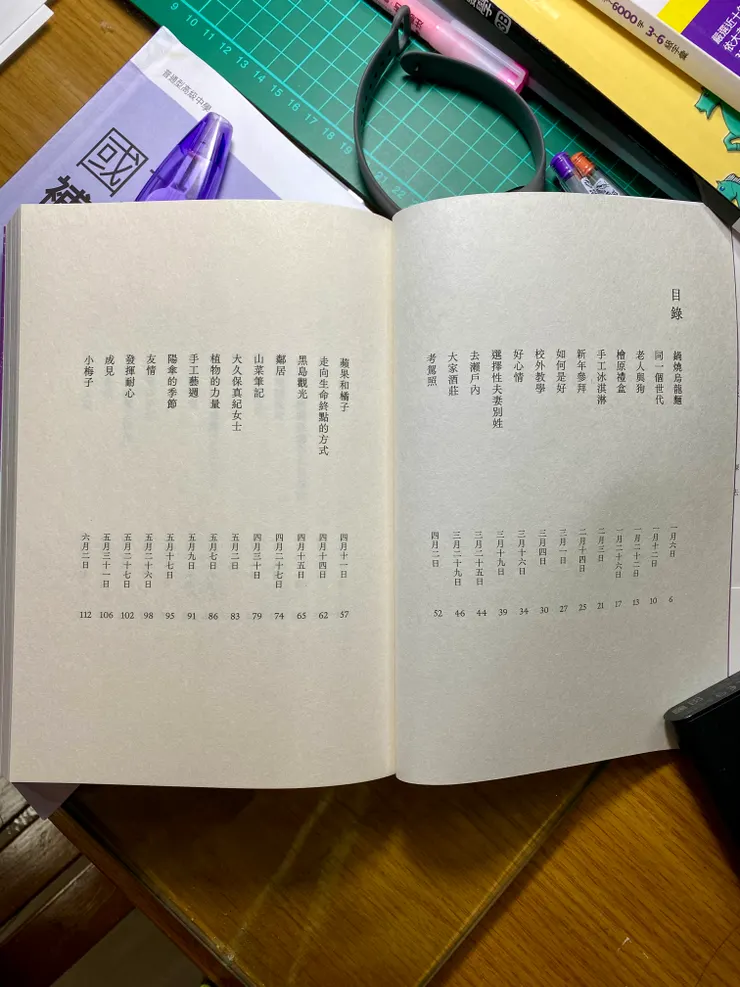 目錄
鍋燒烏龍麵 一月六日 6
同一個世代 一月十二日 10
老人與狗 一月二十二日 13
檜原禮盒 一月二十六日 17
手工冰淇淋 二月三日 21
新年參拜 二月十四日 25
如何是好 三月一日 27
校外教學 三月四日 30
好心情 三月十六日 34
選擇性夫妻別姓 三月十九日 39
去瀨戶內 三月二十五日 44
大家酒莊 三月二十九日 46
考駕照 四月二日 52
蘋果和橘子 四月十一日 57
走向生命終點的方式 四月十四日 62
黑島觀光 四月十五日 65
鄰居 四月二十七日 74
山菜筆記 四月三十日 79
大久保真紀女士 五月二日 83
植物的力量 五月七日 86
手工藝週 五月九日 91
陽傘的季節 五月十七日 95
友情 五月二十六日 98
發揮耐心 五月二十七日 102
成見 五月三十一日 106
小梅子 六月二日 112
普通型高級中學
國
9 10 11 12 13 14 15 16 17 18 19 20 21 22
6000
3-6
嚴選近十